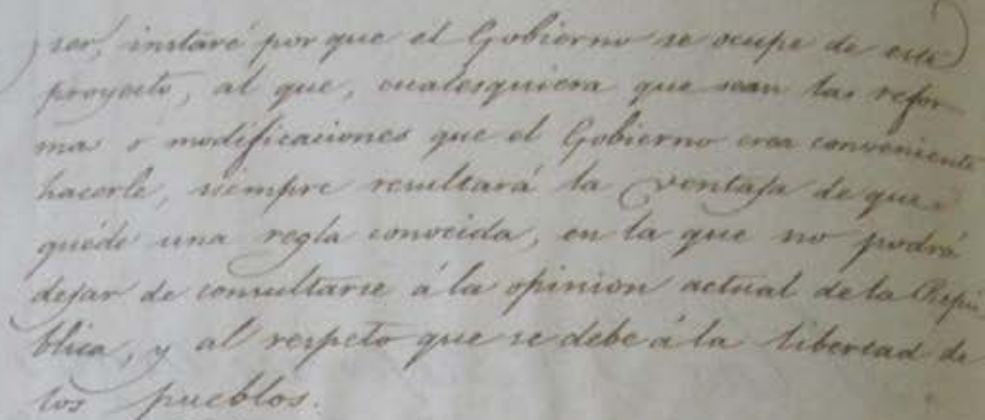 ser, instaré por que el Gobierno se ocupe de este
proyecto, al que, cualesquiera que sean las refor-
mas o modificaciones que el Gobierno crea conveniente
hacerle, siempre resultará la ventaja de que
quede una regla conocida, en la que no podrá
dejar de consultarse á la opinion actual de la Repú
blica, y al respeto que se debe á la libertad de
los pueblos.